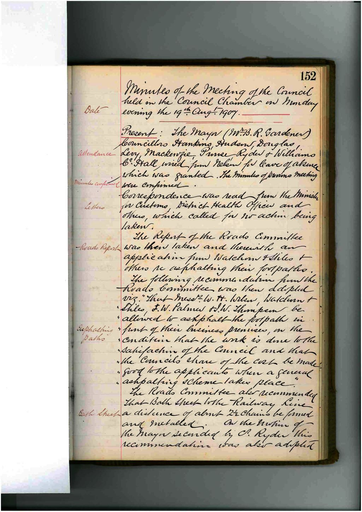 152
Minutes of the Meeting of the Council
held in the Council Chamber on Monday
evening the 19th Augt 1907.
Date
Present: The Mayor (Mr B. R. Gardener)
Councillors Harding Hudson, Douglas,
Levy, Mackenzie, Prime, Ryder & Williams
Attendance
Cr Hall wired from Nelson for leave of absence
which was granted. The Minutes of previous meeting
were confirmed.
Minutes confirmed
Correspondence was read from the Minister
of Customs, District Health Officer and
others, which called for no action being
taken.
Letters
The Report of the Roads Committee
was then taken and therewith an
application from Watchorn & Stiles &
others re asphalting their footpaths.
Roads Report
The following recommendation from the
Roads Committee was then adopted
viz. "That Messrs W. H. Walter, Watchorn &
Stiles, F. W. Palmer, & W. Thompson be
allowed to asphalt the footpath in
front of their business premises, on the
condition that the work is done to the
satisfaction of the Council and that
the Council's share of the cost be made
good to the applicants when a general
asphalting scheme takes place".
Asphalting paths
The Roads Committee also recommended
That Both Street to the Railway Line
a distance of about 2½ chains be formed
and metalled. On the motion of
the Mayor seconded by Cr Ryder this
recommendation was also adopted
Both Street